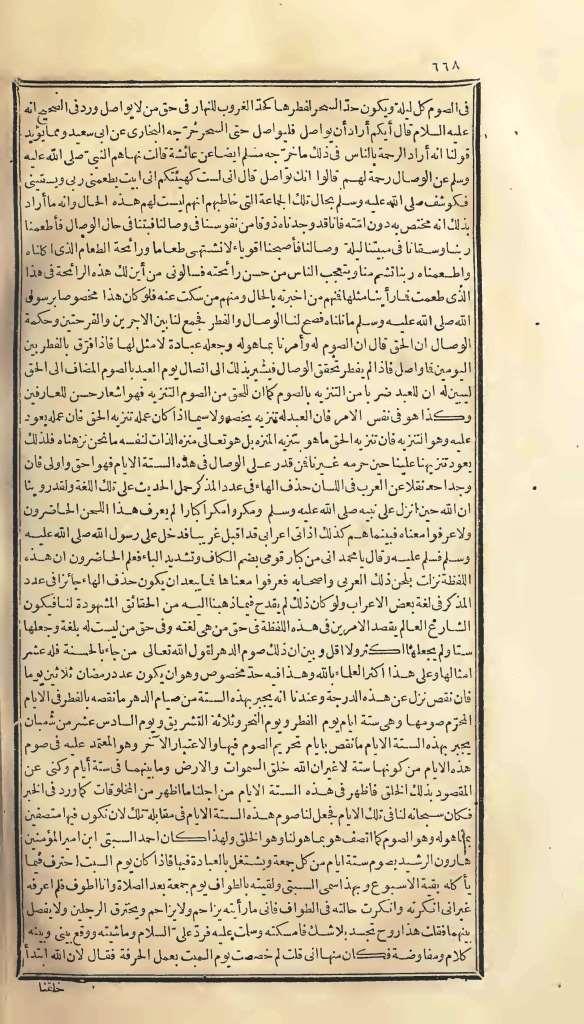 ٦٦٨
فى الصوم كل ليلة ويكون حد السحر لفطرها كحد الغروب للنهار فى حق من لا يواصل ورد فى الصحيح انه
عليه السلام قال أيكم أراد أن يواصل فليواصل حتى السحر خرجه البخارى عن ابى سعيد ومما يؤيد
قولنا انه أراد الرحمة بالناس فى ذلك ما خرجه مسلم ايضا عن عائشة قالت نهاهم النبى صلى الله عليه
وسلم عن الوصال رحمة لهم قالوا انك تواصل قال انى لست كهيئتكم انى ابيت يطعمنى ربى ويسقينى
فكوشف صلى الله عليه وسلم بحال تلك الجماعة التى خاطبهم انهم ليست لهم هذه الحال وانه ما أراد
بذلك انه مختص به دون امته فانا قد وجدناه ذوقا من نفوسنا فى وصالنا فبتنا فى حال الوصال فأطعمنا
ربنا وسقانا فى مبيتنا ليلة وصالنا فأصبحنا اقوياء لا نشتهى طعاما ورائحة الطعام الذى اكلناه
واطعمناه ربنا تشم منا ويتعجب الناس من حسن رائحته فسألونى من أين لك هذه الرائحة فى هذا
الذى طعمت فما رأينا مثلها فمنهم من اخبرته بالحال ومنهم من سكت عنه فلو كان هذا مخصوصا برسول
الله صلى الله عليه وسلم ما نلناه فصح لنا الوصال والفطر فجمع لنا بين الاجرين والفرحتين وحكمة
الوصال ان الحق قال ان الصوم له وأمرنا بما هو له وجعله عبادة لا مثل لها فاذا فرق بالفطر بين
اليومين فما واصل فاذا لم يفطر تحقق الوصال فيشير بذلك الى اتصال يوم العبد بالصوم المضاف الى الحق
ليبين له ان للعبد ضربا من التنزيه بالصوم كما ان للحق من الصوم التنزيه فهو اشعار حسن للعارفين
وكذا هو فى نفس الامر فان العبد له تنزيه يخصه ولا سيما اذا كان عمله تنزيه الحق فان عمله يعود
عليه وهو التنزيه فان تنزيه الحق ما هو بتنزيه المنزه بل هو تعالى منزه الذات لنفسه ما نحن نزهناه فلذلك
يعود تنزيهنا علينا حين حرمه غيرنا فمن قدر على الوصال فى هذه الستة الايام فهو احق واولى فان
وجد احد نقلا عن العرب فى اللسان حذف الهاء فى عدد المذكر حمل الحديث على تلك اللغة ولقد روينا
ان الله حين انزل على نبيه صلى الله عليه وسلم ومكروا مكرا كبارا لم يعرف هذا اللحن الحاضرون
ولا عرفوا معناه فبينما هم كذلك اذ اتى اعرابى قد اقبل غريبا فدخل على رسول الله صلى الله عليه
وسلم فسلم عليه وقال يا محمد انى من كبار قومى بضم الكاف وتشديد الباء فعلم الحاضرون ان هذه
اللفظة نزلت بلحن ذلك العربى واصحابه فعرفوا معناها فما يبعد ان يكون حذف الهاء جائزا فى عدد
المذكر فى لغة بعض الاعراب ولو كان ذلك لم يقدح فيما ذهبنا اليه من الحقائق المشهودة لنا فيكون
الشارع العالم يقصد الامرين فى هذه اللفظة فى حق من هى لغته وفى حق من ليست له بلغة وجعلها
ستا ولم يجعلها اكثر ولا اقل وبين ان ذلك صوم الدهر لقول الله تعالى من جاء بالحسنة فله عشر
امثالها وعلى هذا اكثر العلماء بالله وهذا فيه حد مخصوص وهو ان يكون عدد رمضان ثلاثين يوما
فان نقص نزل عن هذه الدرجة وعندنا انه يجبر بهذه الستة من صيام الدهر ما نقصه بالفطر فى الايام
المحرم صومها وهى ستة ايام يوم الفطر ويوم النحر وثلاثة التشريق ويوم السادس عشر من شعبان
يجبر بهذه الستة الايام ما نقص بايام تحريم الصوم فيها والاعتبار الآخر وهو المعتمد عليه فى صوم
هذه الايام من كونها ستة لا غير ان الله خلق السموات والارض وما بينهما فى ستة أيام وكنى عن
المقصود بذلك الخلق فاظهر فى هذه الستة الايام من اجلنا ما اظهر من المخلوقات كما ورد فى الخبر
فكان سبحانه لنا فى تلك الايام فجعل لنا صوم هذه الستة الايام فى مقابلة تلك لان نكون فيها متصفين
بما هو له وهو الصوم كما اتصف هو بما هو لنا وهو الخلق ولهذا كان احمد السبتى ابن امير المؤمنين
هارون الرشيد يصوم ستة ايام من كل جمعة ويشتغل بالعبادة فيها فاذا كان يوم السبت احترف فيما
يأكله بقية الاسبوع وبهذا سمى السبتى ولقيته بالطواف يوم جمعة بعد الصلاة وانا اطوف فلم اعرفه
غير انى انكرته وانكرت حالته فى الطواف فانى ما رأيته يزاحم ولا يزاحم ويخترق الرجلين ولا يفصل
بينهما فقلت هذا روح تجسد بلا شك فأمسكته وسلمت عليه فرد على السلام وماشيته ووقع بينى وبينه
كلام ومفاوضة فكان منها انى قلت لم خصصت يوم السبت بعمل الحرفة فقال لان الله ابتدأ
خلقنا